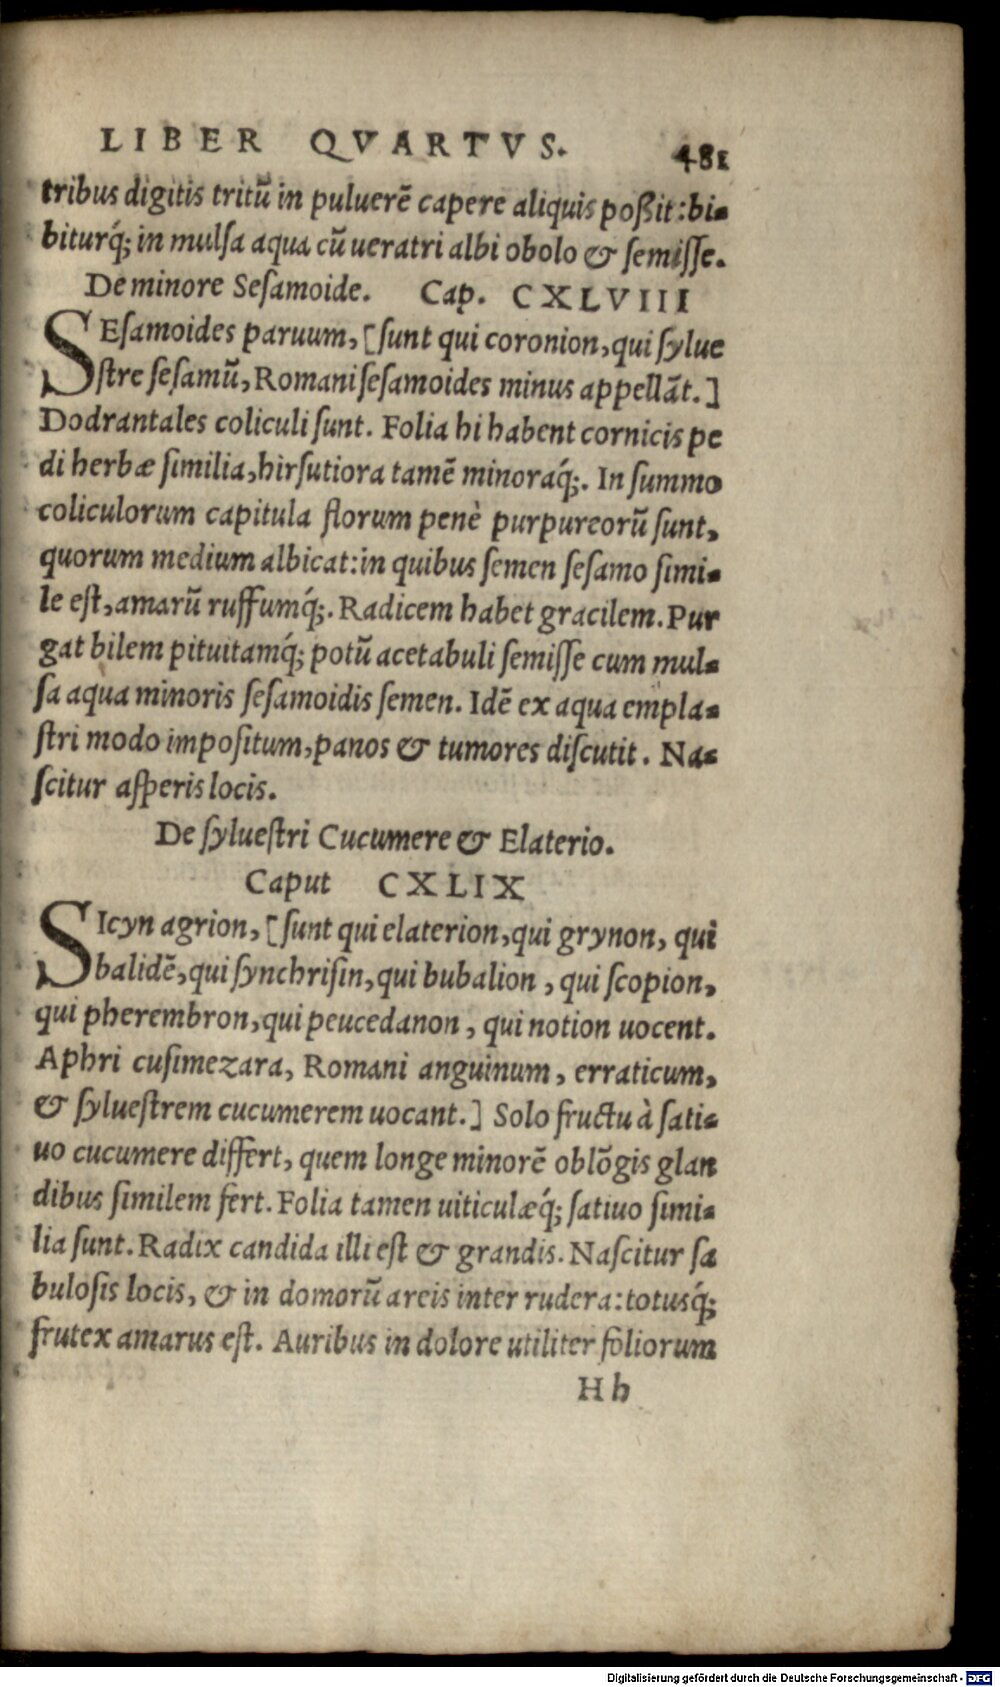 LIBER QVARTVS. 481
tribus digitis tritũ in puluerẽ capere aliquis poßit:bi-
biturq́; in mulsa aqua cũ ueratri albi obolo & semisse.
De minore Sesamoide. Cap. CXLVIII
SEsamoides paruum, [sunt qui coronion, qui sylue
stre sesamũ, Romani sesamoides minus appellãt.]
Dodrantales coliculi sunt. Folia hi habent cornicis pe
di herbæ similia, hirsutiora tamẽ minoraq́;. In summo
coliculorum capitula florum penè purpureorũ sunt,
quorum medium albicat: in quibus semen sesamo simi-
le est, amarũ ruffumq́;. Radicem habet gracilem. Pur
gat bilem pituitamq́; potũ acetabuli semisse cum mul-
sa aqua minoris sesamoidis semen. Idẽ ex aqua empla-
stri modo impositum, panos & tumores discutit. Na-
scitur asperis locis.
De syluestri Cucumere & Elaterio.
Caput CXLIX
SIcyn agrion, [sunt qui elaterion, qui grynon, qui
balidẽ, qui synchrisin, qui bubalion, qui scopion,
qui pherembron, qui peucedanon, qui notion uocent.
Aphri cusimezara, Romani anguinum, erraticum,
& syluestrem cucumerem uocant.] Solo fructu à sati-
uo cucumere differt, quem longe minorẽ oblõgis glan
dibus similem fert. Folia tamen uiticulæq́; satiuo simi-
lia sunt. Radix candida illi est & grandis. Nascitur sa
bulosis locis, & in domorũ areis inter rudera: totusq́;
frutex amarus est. Auribus in dolore utiliter foliorum
Hh
Digitalisierung gefördert durch die Deutsche Forschungsgemeinschaft - DFG